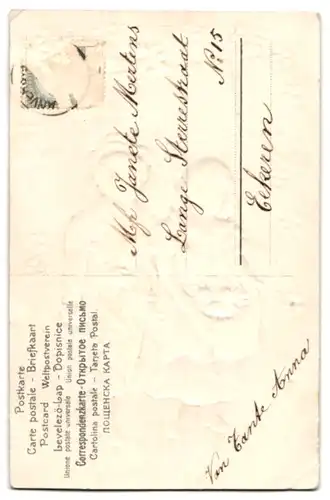 Postkarte
Carte postale - Briefkaart
Postcard Weltpostverein
Levelező-Lap - Dopisnice
Unione postale universale Union postale universelle
Correspondenzkarte - Открытое письмо
Cartolina postale - Tarjeta Postal
ПОЩЕНСКА КАРТА
Mej Janete Mertens
Lange Sterrestraat
No 15
Eekeren
Van Tante Anna